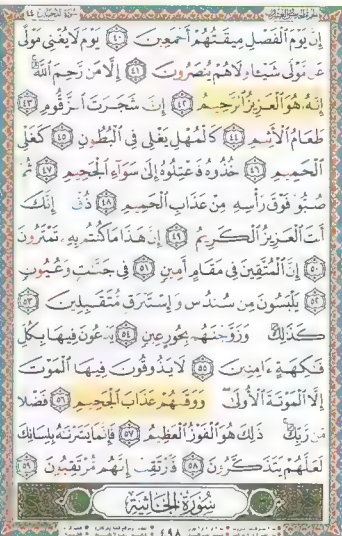 سُورَةُ الدُّخَانِ ٤٤
إِنَّ يَوْمَ الْفَصْلِ مِيقَاتُهُمْ أَجْمَعِينَ ٤٠ يَوْمَ لَا يُغْنِي مَوْلًى
عَن مَّوْلًى شَيْئًا وَلَا هُمْ يُنصَرُونَ ٤١ إِلَّا مَن رَّحِمَ اللَّهُ
إِنَّهُ هُوَ الْعَزِيزُ الرَّحِيمُ ٤٢ إِنَّ شَجَرَتَ الزَّقُّومِ ٤٣
طَعَامُ الْأَثِيمِ ٤٤ كَالْمُهْلِ يَغْلِي فِي الْبُطُونِ ٤٥ كَغَلْيِ
الْحَمِيمِ ٤٦ خُذُوهُ فَاعْتِلُوهُ إِلَى سَوَاءِ الْجَحِيمِ ٤٧ ثُمَّ
صُبُّوا فَوْقَ رَأْسِهِ مِنْ عَذَابِ الْحَمِيمِ ٤٨ ذُقْ إِنَّكَ
أَنتَ الْعَزِيزُ الْكَرِيمُ ٤٩ إِنَّ هَذَا مَا كُنتُم بِهِ تَمْتَرُونَ
٥٠ إِنَّ الْمُتَّقِينَ فِي مَقَامٍ أَمِينٍ ٥١ فِي جَنَّاتٍ وَعُيُونٍ
٥٢ يَلْبَسُونَ مِن سُندُسٍ وَإِسْتَبْرَقٍ مُّتَقَابِلِينَ ٥٣
كَذَلِكَ وَزَوَّجْنَاهُم بِحُورٍ عِينٍ ٥٤ يَدْعُونَ فِيهَا بِكُلِّ
فَاكِهَةٍ آمِنِينَ ٥٥ لَا يَذُوقُونَ فِيهَا الْمَوْتَ
إِلَّا الْمَوْتَةَ الْأُولَى وَوَقَاهُمْ عَذَابَ الْجَحِيمِ ٥٦ فَضْلًا
مِّن رَّبِّكَ ذَلِكَ هُوَ الْفَوْزُ الْعَظِيمُ ٥٧ فَإِنَّمَا يَسَّرْنَاهُ بِلِسَانِكَ
لَعَلَّهُمْ يَتَذَكَّرُونَ ٥٨ فَارْتَقِبْ إِنَّهُم مُّرْتَقِبُونَ ٥٩
سُورَةُ الْجَاثِيَةِ
٤٩٨